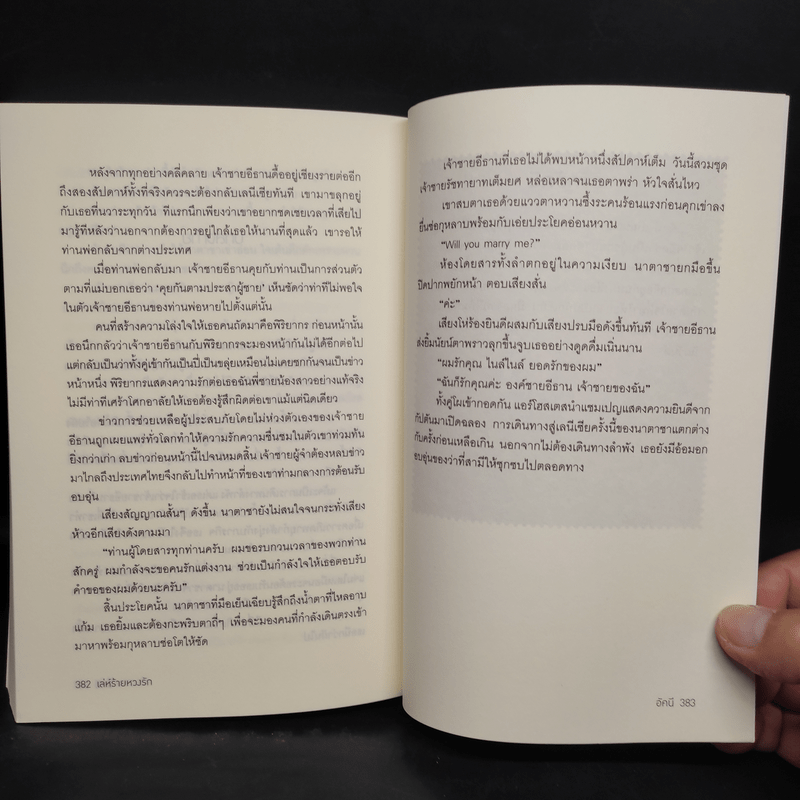 หลังจากทุกอย่างคลี่คลาย เจ้าชายอีธานดื้ออยู่เชียงรายต่ออีก
ถึงสองสัปดาห์ทั้งที่จริงควรจะต้องกลับเลนีเซียทันที เขามาขลุกอยู่
กับเธอที่นวาระทุกวัน ทีแรกนึกเพียงว่าเขาอยากชดเชยเวลาที่เสียไป
มารู้ทีหลังว่านอกจากต้องการอยู่ใกล้เธอให้นานที่สุดแล้ว เขารอให้
ท่านพ่อกลับจากต่างประเทศ
เมื่อท่านพ่อกลับมา เจ้าชายอีธานคุยกับท่านเป็นการส่วนตัว
ตามที่แม่บอกเธอว่า ‘คุยกันตามประสาผู้ชาย’ เห็นชัดว่าท่าทีไม่พอใจ
ในตัวเจ้าชายอีธานของท่านพ่อหายไปตั้งแต่นั้น
คนที่สร้างความโล่งใจให้เธอคนถัดมาคือพิริยากร ก่อนหน้านั้น
เธอนึกกลัวว่าเจ้าชายอีธานกับพิริยากรจะมองหน้ากันไม่ได้อีกต่อไป
แต่กลับเป็นว่าทั้งคู่เข้ากันเป็นปี่เป็นขลุ่ยเหมือนไม่เคยชกกันจนเป็นข่าว
หน้าหนึ่ง พิริยากรแสดงความรักต่อเธอฉันพี่ชายน้องสาวอย่างแท้จริง
ไม่มีท่าทีเศร้าโศกอาลัยให้เธอต้องรู้สึกผิดต่อเขาแม้แต่นิดเดียว
ข่าวการช่วยเหลือผู้ประสบภัยโดยไม่ห่วงตัวเองของเจ้าชาย
อีธานถูกเผยแพร่ทั่วโลกทำให้ความรักความชื่นชมในตัวเขาท่วมท้น
ยิ่งกว่าเก่า ลบข่าวก่อนหน้านี้ไปจนหมดสิ้น เจ้าชายผู้จำต้องหลบข่าว
มาไกลถึงประเทศไทยจึงกลับไปทำหน้าที่ของเขาท่ามกลางการต้อนรับ
อบอุ่น
เสียงสัญญาณสั้นๆ ดังขึ้น นาตาชายังไม่สนใจจนกระทั่งเสียง
ห้าวอีกเสียงดังตามมา
“ท่านผู้โดยสารทุกท่านครับ ผมขอรบกวนเวลาของพวกท่าน
สักครู่ ผมกำลังจะขอคนรักแต่งงาน ช่วยเป็นกำลังใจให้เธอตอบรับ
คำขอของผมด้วยนะครับ”
สิ้นประโยคนั้น นาตาชาที่มือเย็นเฉียบรู้สึกถึงน้ำตาที่ไหลอาบ
แก้ม เธอยิ้มและต้องกะพริบตาถี่ๆ เพื่อจะมองคนที่กำลังเดินตรงเข้า
มาหาพร้อมกุหลาบช่อโตให้ชัด
382 เล่ห์ร้ายหวงรัก
เจ้าชายอีธานที่เธอไม่ได้พบหน้าหนึ่งสัปดาห์เต็ม วันนี้สวมชุด
เจ้าชายรัชทายาทเต็มยศ หล่อเหลาจนเธอตาพร่า หัวใจสั่นไหว
เขาสบตาเธอด้วยแววตาหวานซึ้งระคนร้อนแรงก่อนคุกเข่าลง
ยื่นช่อกุหลาบพร้อมกับเอ่ยประโยคอ่อนหวาน
“Will you marry me?”
ห้องโดยสารทั้งลำตกอยู่ในความเงียบ นาตาชายกมือขึ้น
ปิดปากพยักหน้า ตอบเสียงสั่น
“ค่ะ”
เสียงโห่ร้องยินดีผสมกับเสียงปรบมือดังขึ้นทันที เจ้าชายอีธาน
ส่งยิ้มนัยน์ตาพราวลุกขึ้นจูบเธออย่างดูดดื่มเนิ่นนาน
“ผมรักคุณ ไนล์ไนล์ ยอดรักของผม”
“ฉันก็รักคุณค่ะ องค์ชายอีธาน เจ้าชายของฉัน”
ทั้งคู่โผเข้ากอดกัน แอร์โฮสเตสนำแชมเปญแสดงความยินดีจาก
กัปตันมาเปิดฉลอง การเดินทางสู่เลนีเซียครั้งนี้ของนาตาชาแตกต่าง
กับครั้งก่อนเหลือเกิน นอกจากไม่ต้องเดินทางลำพัง เธอยังมีอ้อมอก
อบอุ่นของว่าที่สามีให้ซุกซบไปตลอดทาง
อัคนี 383